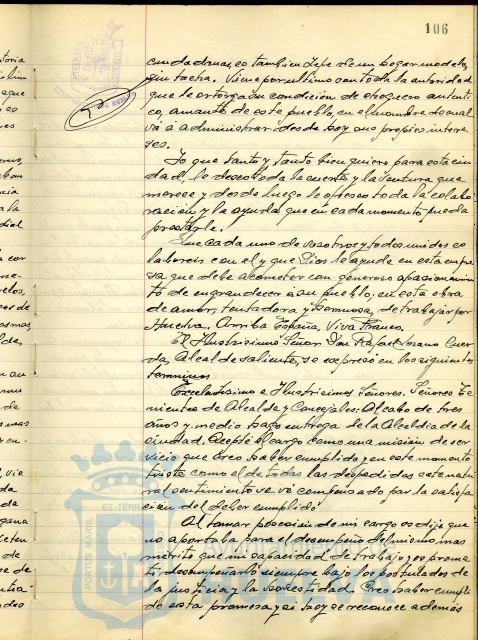 106
ciudadanas, es tambien Jefe de un hogar modelo,
sin tacha. Viene por ultimo con toda la autoridad
que le otorga su condición de choquero autenti-
co, amante de este pueblo, en el nombre del cual
va a administrar desde hoy sus propios intere-
ses.
Yo que tanto y tanto bien quiero para esta ciu
dad, le deseo toda la suerte y la ventura que
merece y desde luego le ofrezco toda la colabo-
ración y la ayuda que en cada momento pueda
prestarle.
Que cada uno de vosotros y todos unidos co
laboreis con el y que Dios le ayude en esta empre
sa que debe acometer con generoso apasionamien
to de engrandecer a su pueblo; en esta obra
de amor, tentadora y hermosa, de trabajar por
Huelva. Arriba España, Viva Franco.
El Ilustrisimo Señor Don Rafael Lozano Cuer
da, Alcalde saliente, se expresó en los siguientes
terminos
Excelentisimo e Ilustrisimos Señores. Señores Te
nientes de Alcalde y Concejales: Al cabo de tres
años y medio hago entrega de la Alcaldia de la
ciudad. Acepté el cargo como una misión de ser
vicio que creo haber cumplido, y en este momento
triste como el de todas las despedidas este natu
ral sentimiento se vé compensado por la satisfac
ción del deber cumplido
Al tomar posesión de mi cargo os dije que
no aportaba para el desempeño del mismo mas
merito que mi capacidad de trabajo y os prome
ti desempeñarlo siempre bajo los postulados de
la justicia y la honestidad. Creo haber cumpli
do esta promesa y si hoy se reconoce además
PORTUS MARIS ET TERRAE